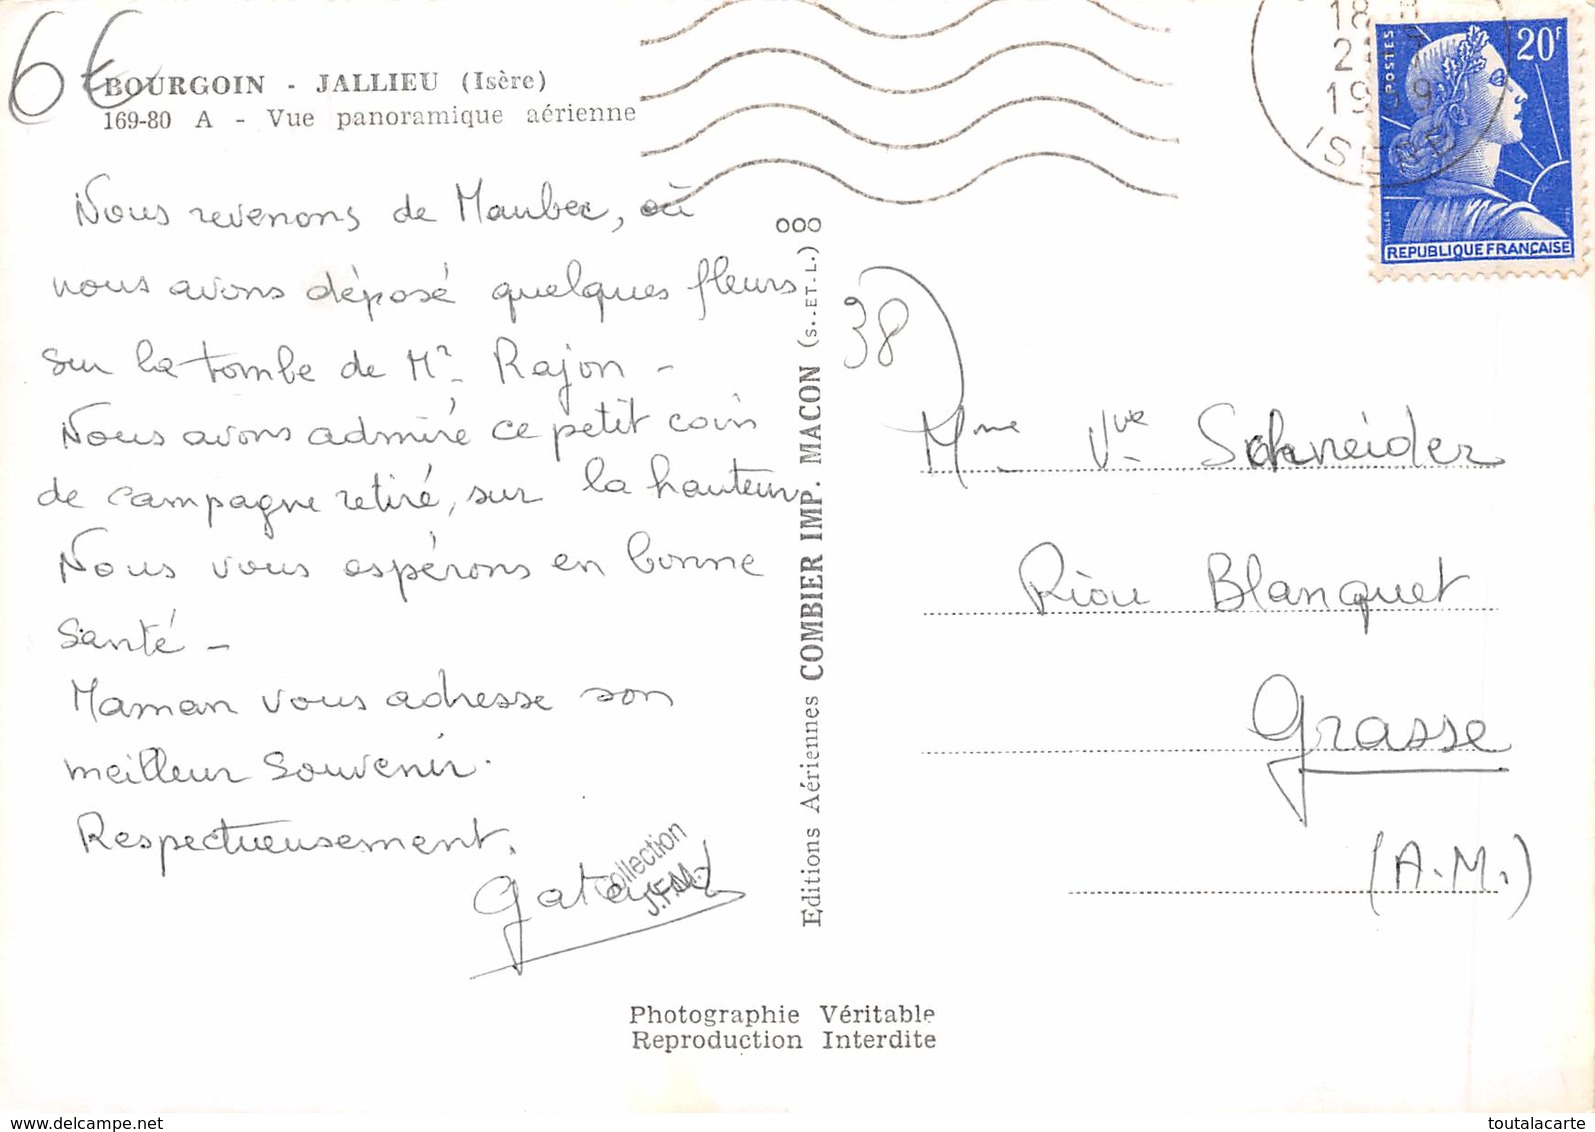 6€
BOURGOIN - JALLIEU (Isère)
169-80 A - Vue panoramique aérienne
Nous revenons de Maubec, où
nous avons déposé quelques fleurs
sur la tombe de Mr. Rajon -
Nous avons admiré ce petit coin
de campagne retiré, sur la hauteur
Nous vous espérons en bonne
santé -
Maman vous adresse son
meilleur souvenir.
Respectueusement.
Collection
J.F.M.
ooo
Editions Aériennes COMBIER IMP. MACON (S.-ET-L.)
38
18 H
1959
ISERE
POSTES
20F
MULLER
REPUBLIQUE FRANÇAISE
Mme Vve Schneider
Riou Blanquet
Grasse
(A.M.)
Photographie Véritable
Reproduction Interdite
www.delcampe.net
toutalacarte